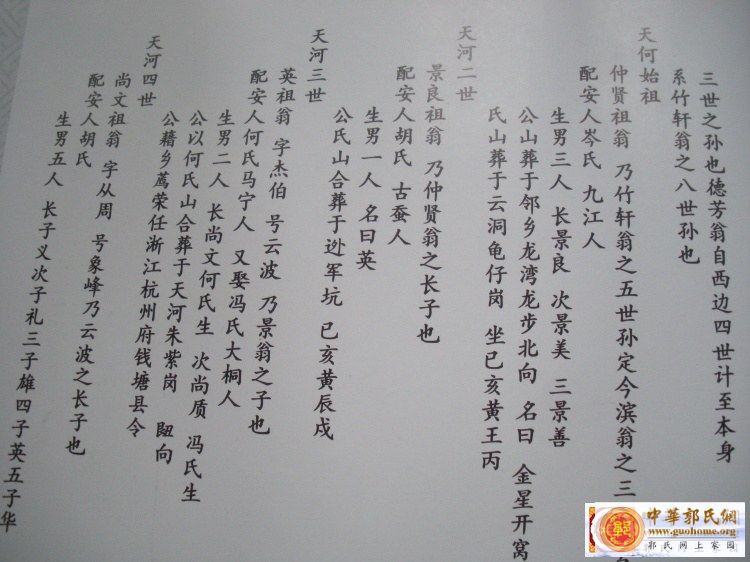 三世之孙也德芳翁自西边四世计至本身
系竹轩翁之八世孙也
天何始祖
仲贤祖翁 乃竹轩翁之五世孙定今滨翁之三
配安人岑氏 九江人
生男三人 长景良 次景美 三景善
公山葬于邻乡龙湾龙步北向 名曰 金星开窝
氏山葬于云洞龟仔岗 坐已亥黄王丙
天河二世
景良祖翁 乃仲贤翁之长子也
配安人胡氏 古蚕人
生男一人 名曰英
公氏山合葬于逊军坑 已亥黄辰戌
天河三世
英祖翁 字杰伯 号云波 乃景翁之子也
配安人何氏马宁人 又娶冯氏大桐人
生男二人 长尚文何氏生 次尚质 冯氏生
公以何氏山合葬于天河朱紫岗 向
公藉乡荐荣任浙江杭州府钱塘县令
天河四世
尚文祖翁 字从周 号象峰乃云波之长子也
配安人胡氏
生男五人 长子义次子礼三子雄四子英五子华
中華郭氏網
www.guohome.org
郭氏网上家园